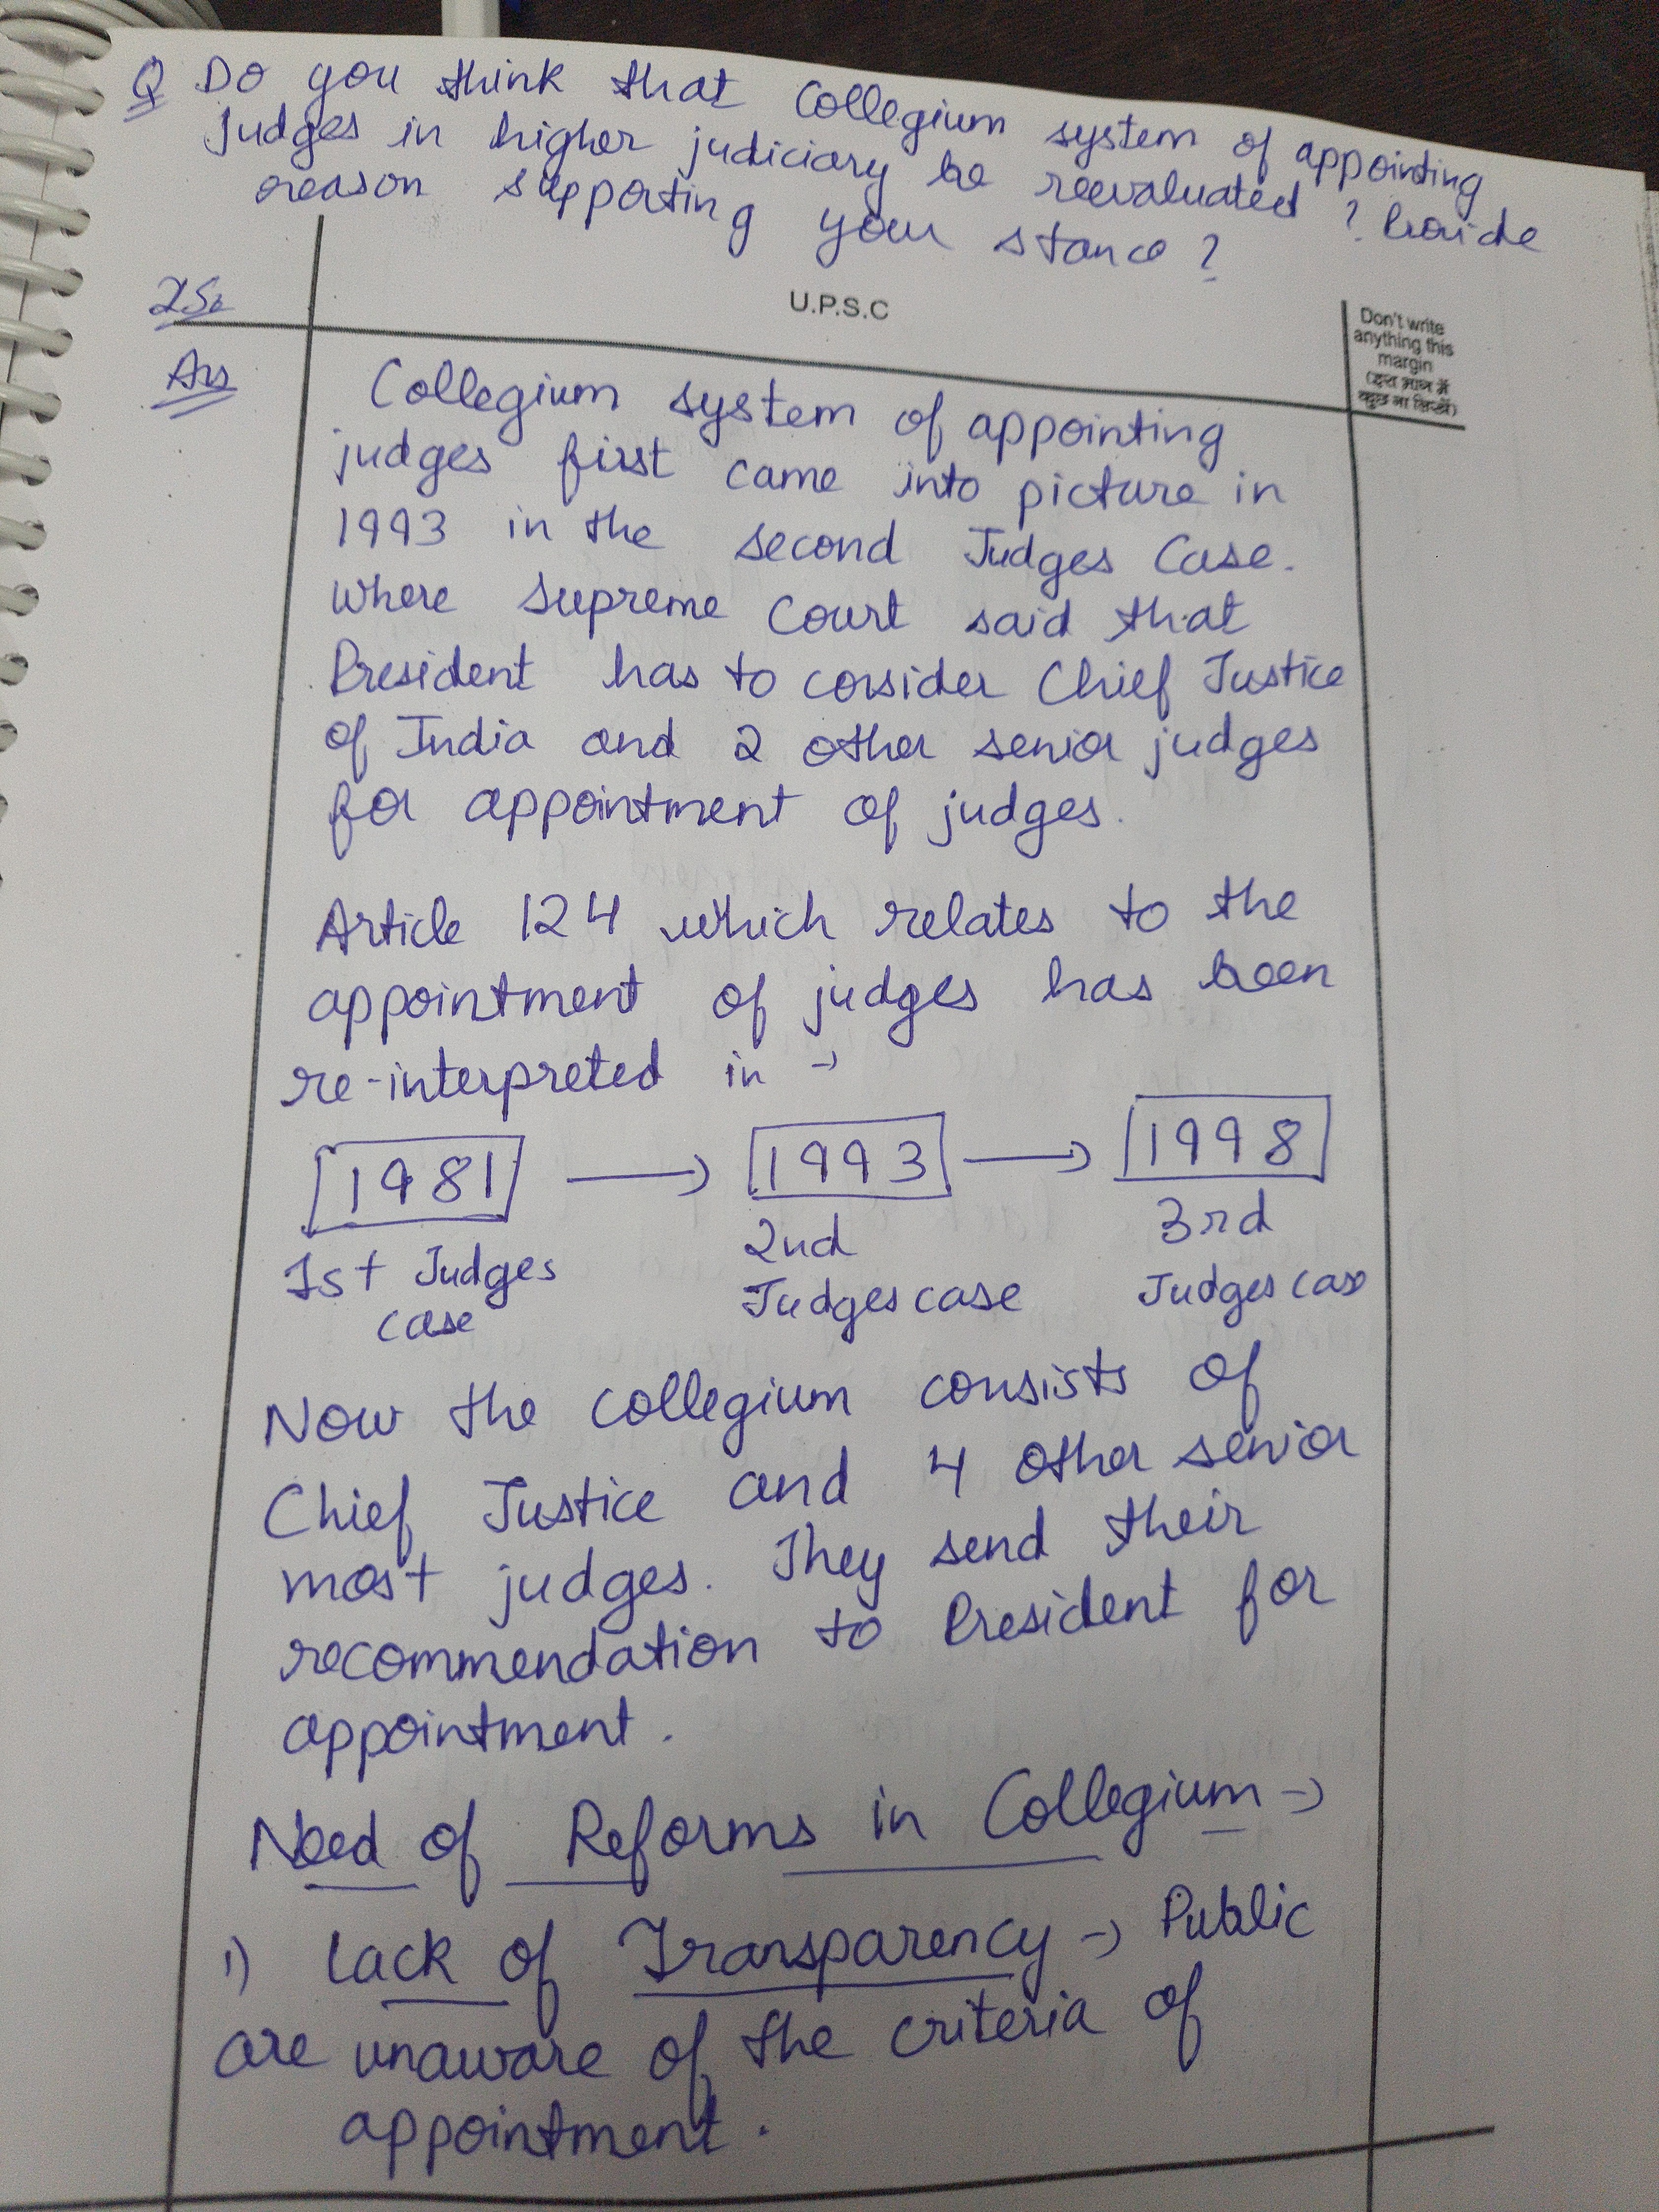 Q Do you think that Collegium system of appointing
judges in higher judiciary be reevaluated ? Provide
reason supporting your stance ?
25.
U.P.S.C
Don't write
anything this
margin
(इस भाग में
कुछ ना लिखें)
Ans
Collegium system of appointing
judges first came into picture in
1993 in the second Judges Case.
where Supreme Court said that
President has to consider Chief Justice
of India and 2 other senior judges
for appointment of judges.
Article 124 which relates to the
appointment of judges has been
re-interpreted in →
1981 → 1993 → 1998
1st Judges case
2nd Judges case
3rd Judges case
Now the collegium consists of
Chief Justice and 4 other senior
most judges. They send their
recommendation to President for
appointment.
Need of Reforms in Collegium →
1) Lack of Transparency → Public
are unaware of the criteria of
appointment.